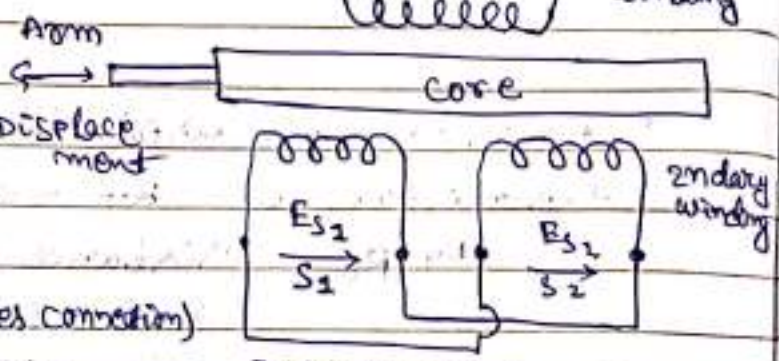 Arm
core
Displace
ment
2ndary
winding
Es1
S1
Es2
S2
es connection)